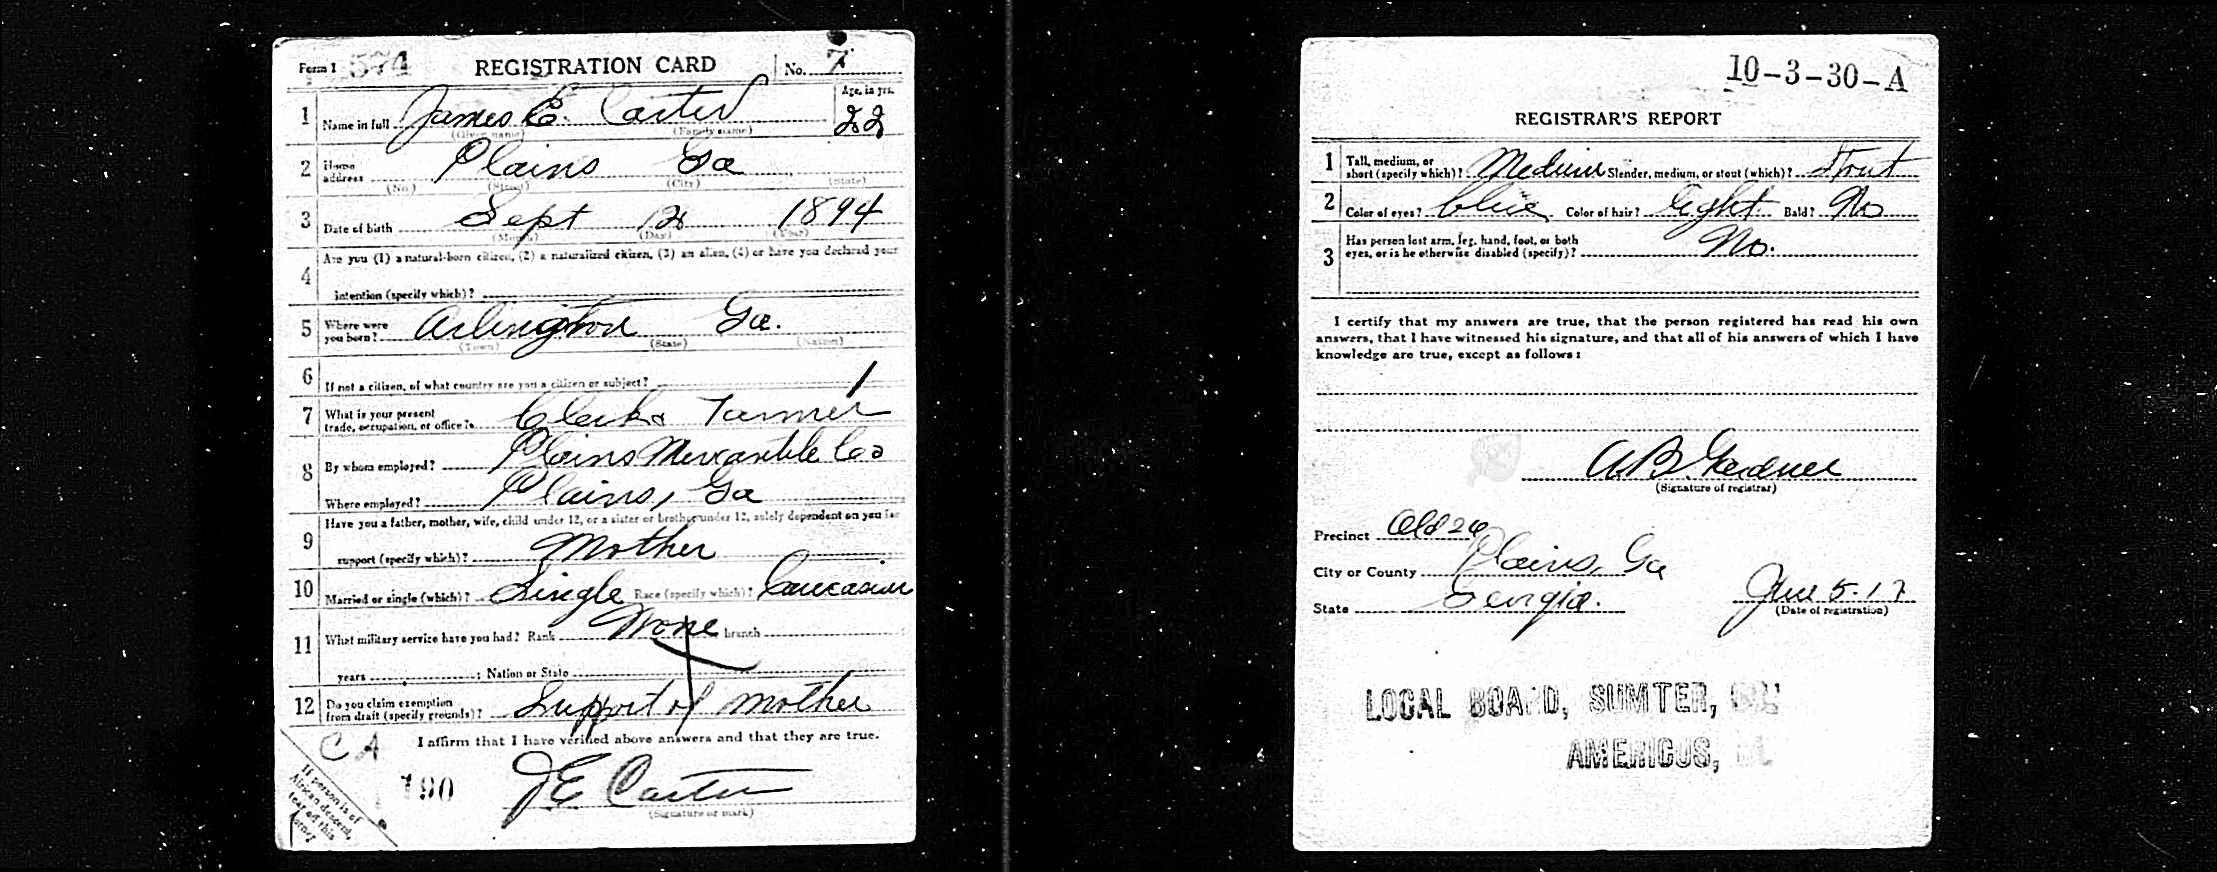 Form 1 574 REGISTRATION CARD No. 7
1 Name in full James E. Carter Age, in yrs. 22
(Given name) (Family name)
2 Home address Plains Ga
(No.) (Street) (City) (State)
3 Date of birth Sept 12 1894
(Month) (Day) (Year)
4 Are you (1) a natural-born citizen, (2) a naturalized citizen, (3) an alien, (4) or have you declared your
intention (specify which)?
5 Where were you born? Arlington Ga.
(Town) (State) (Nation)
6 If not a citizen, of what country are you a citizen or subject?
7 What is your present trade, occupation, or office? Clerk & Farmer
8 By whom employed? Plains Mercantile Co
Where employed? Plains, Ga
9 Have you a father, mother, wife, child under 12, or a sister or brother under 12, solely dependent on you for
support (specify which)? Mother
10 Married or single (which)? Single Race (specify which)? Caucasian
11 What military service have you had? Rank None branch
years ; Nation or State
12 Do you claim exemption from draft (specify grounds)? Support of mother
I affirm that I have verified above answers and that they are true.
C A
190
J E Carter
(Signature or mark)
If person is of
African descent,
tear off this
corner
10-3-30-A
REGISTRAR'S REPORT
1 Tall, medium, or short (specify which)? Medium Slender, medium, or stout (which)? Stout
2 Color of eyes? Blue Color of hair? Light Bald? No
3 Has person lost arm, leg, hand, foot, or both
eyes, or is he otherwise disabled (specify)? No.
I certify that my answers are true, that the person registered has read his own
answers, that I have witnessed his signature, and that all of his answers of which I have
knowledge are true, except as follows:
(Signature of registrar)
Precinct Old 26
City or County Plains, Ga
State Georgia. June 5-17
(Date of registration)
LOCAL BOARD, SUMTER,
AMERICUS,